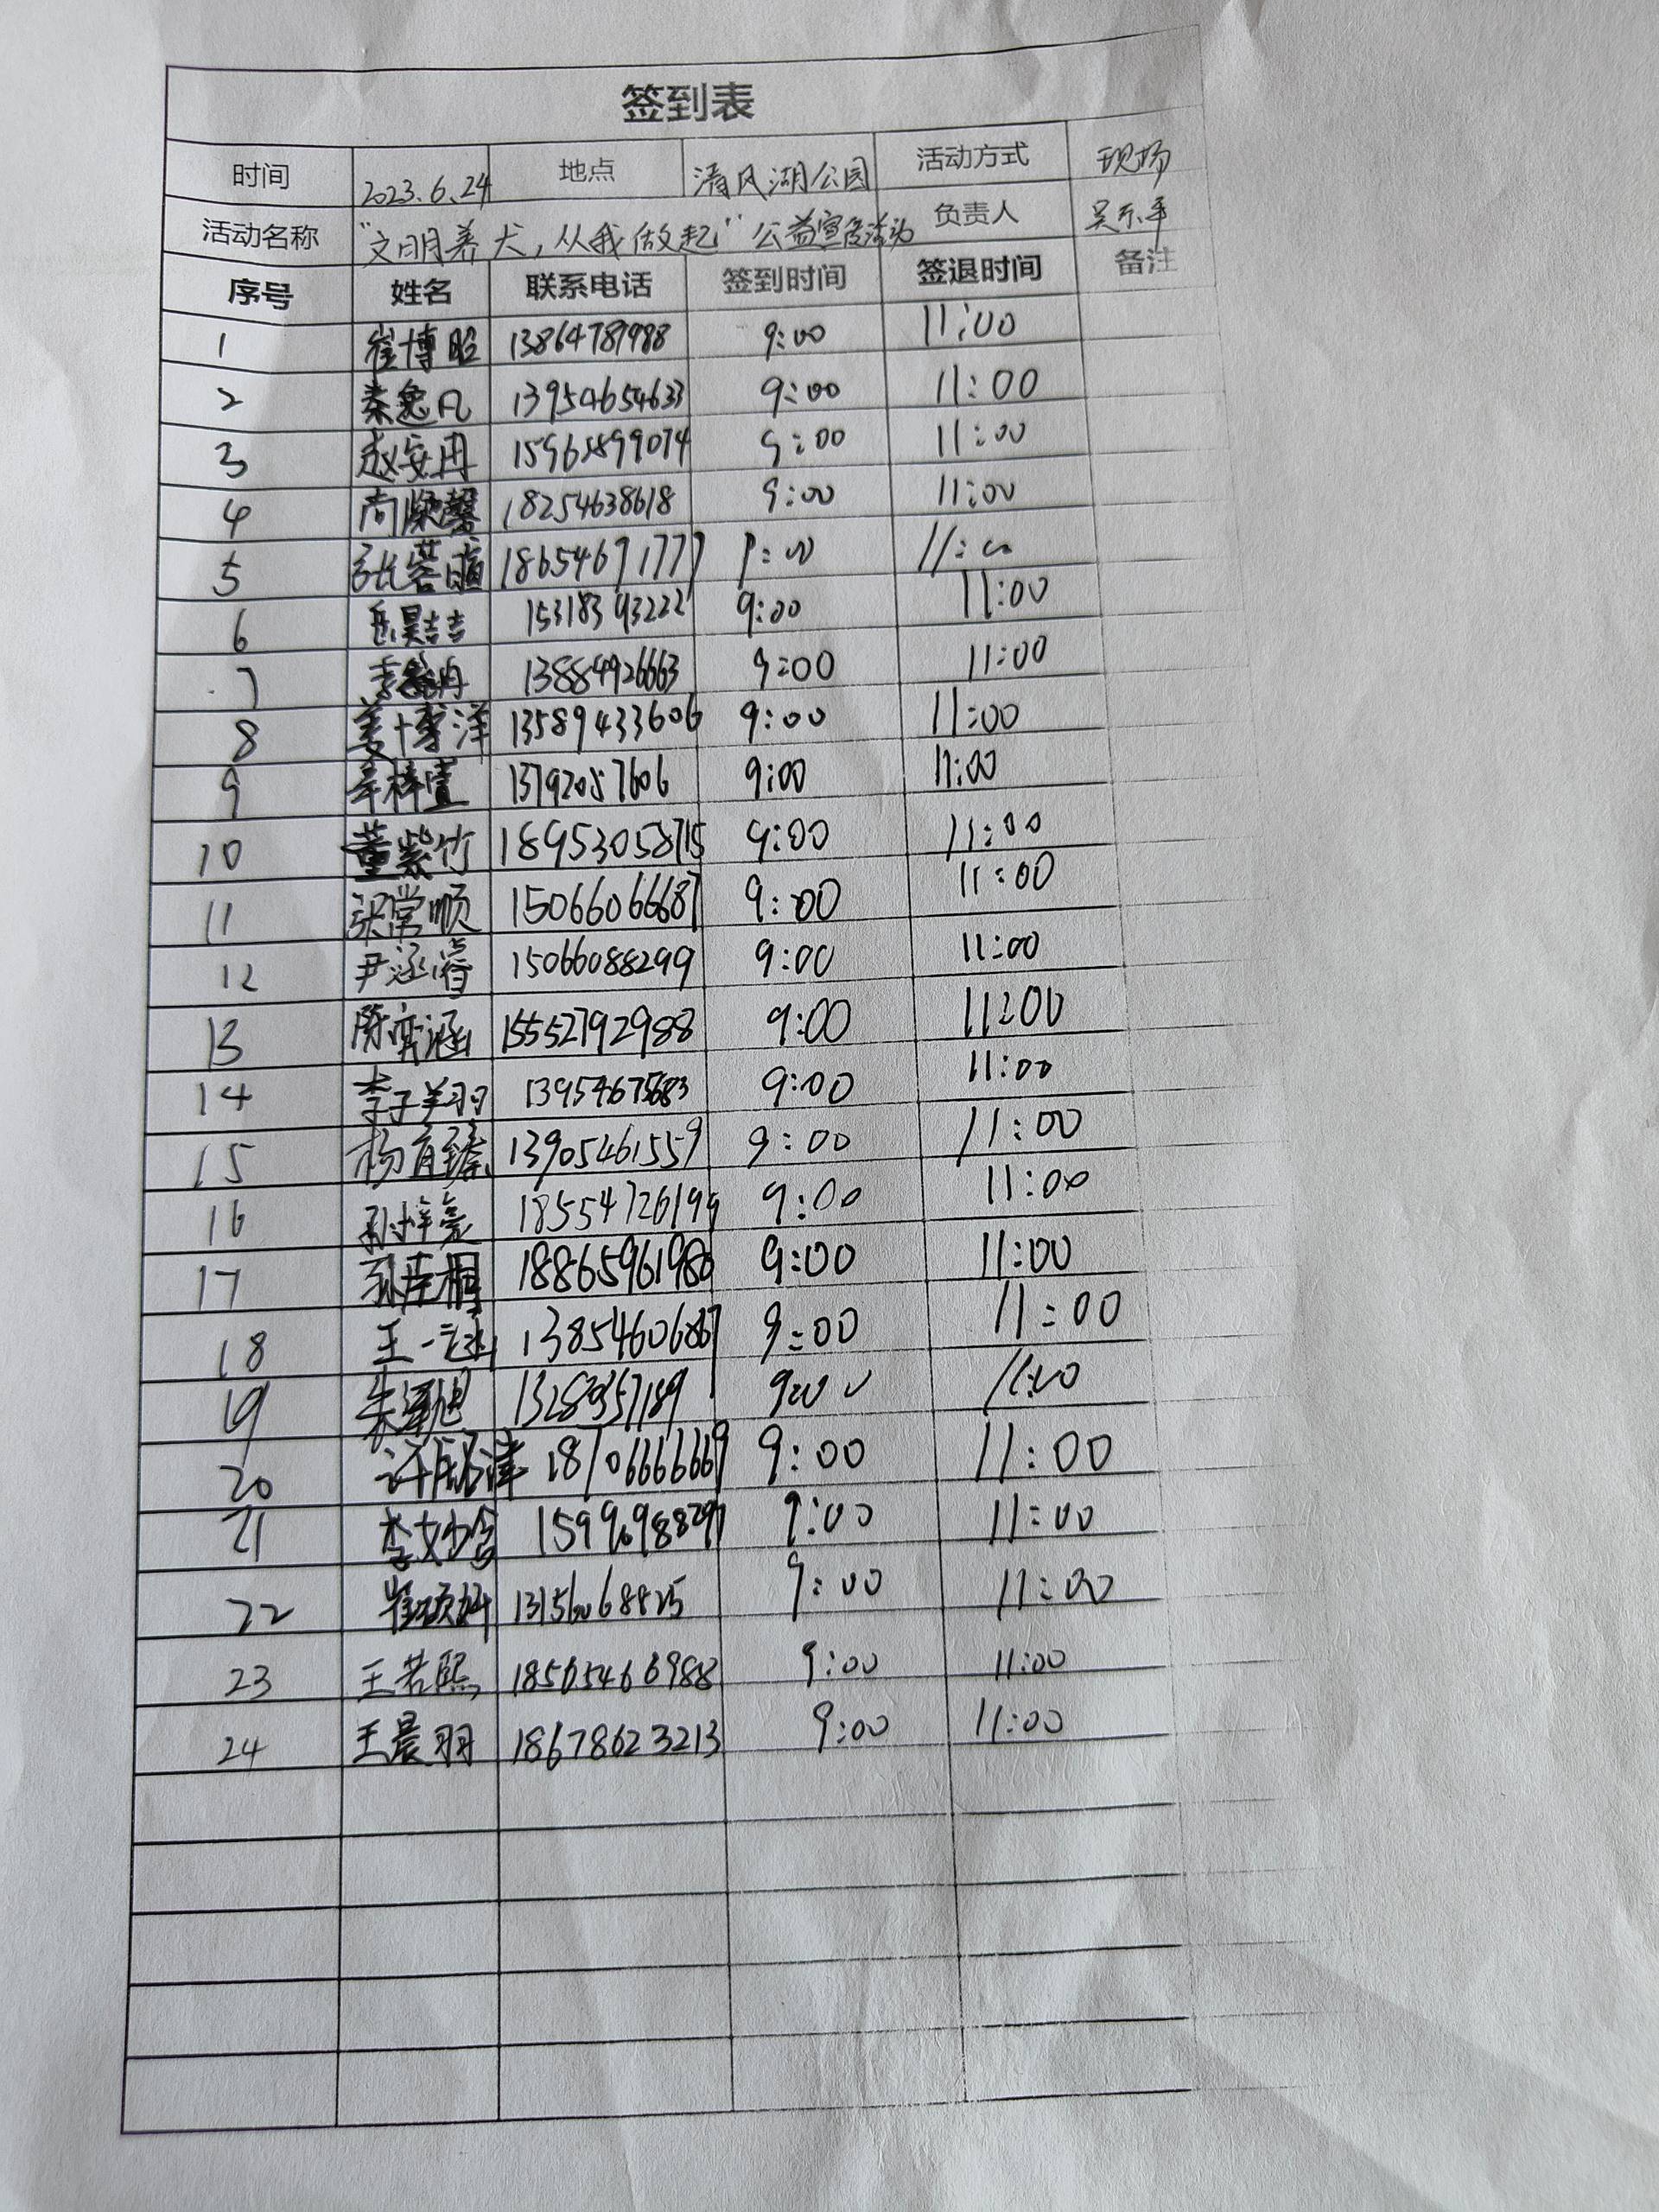 签到表
时间 2023.6.24 地点 清风湖公园 活动方式 现场
活动名称 “文明养犬，从我做起”公益宣传活动 负责人 吴东平
序号 姓名 联系电话 签到时间 签退时间 备注
1 崔博昭 13864781988 9:00 11:00
2 秦逸凡 13954654633 9:00 11:00
3 赵安冉 15965899074 9:00 11:00
4 尚潆馨 18254638618 9:00 11:00
5 张若萱 18654691777 9:00 11:00
6 岳昊喆 15318393222 9:00 11:00
7 13884926663 9:00 11:00
8 姜博洋 13589433606 9:00 11:00
9 辛梓萱 13792057606 9:00 11:00
10 董紫竹 18953058715 9:00 11:00
11 梁常顺 15066066687 9:00 11:00
12 尹涵睿 15066088299 9:00 11:00
13 陈奕涵 15552792988 9:00 11:00
14 李子翔 13954675683 9:00 11:00
15 杨育臻 13905461559 9:00 11:00
16 孙梓亮 18554726199 9:00 11:00
17 18865961980 9:00 11:00
18 王一诺 9:00 11:00
19 9:00 11:00
20 18706666669 9:00 11:00
21 李妙含 9:00 11:00
22 13156068825 9:00 11:00
23 王若熙 18565466988 9:00 11:00
24 王晨羽 18678623213 9:00 11:00